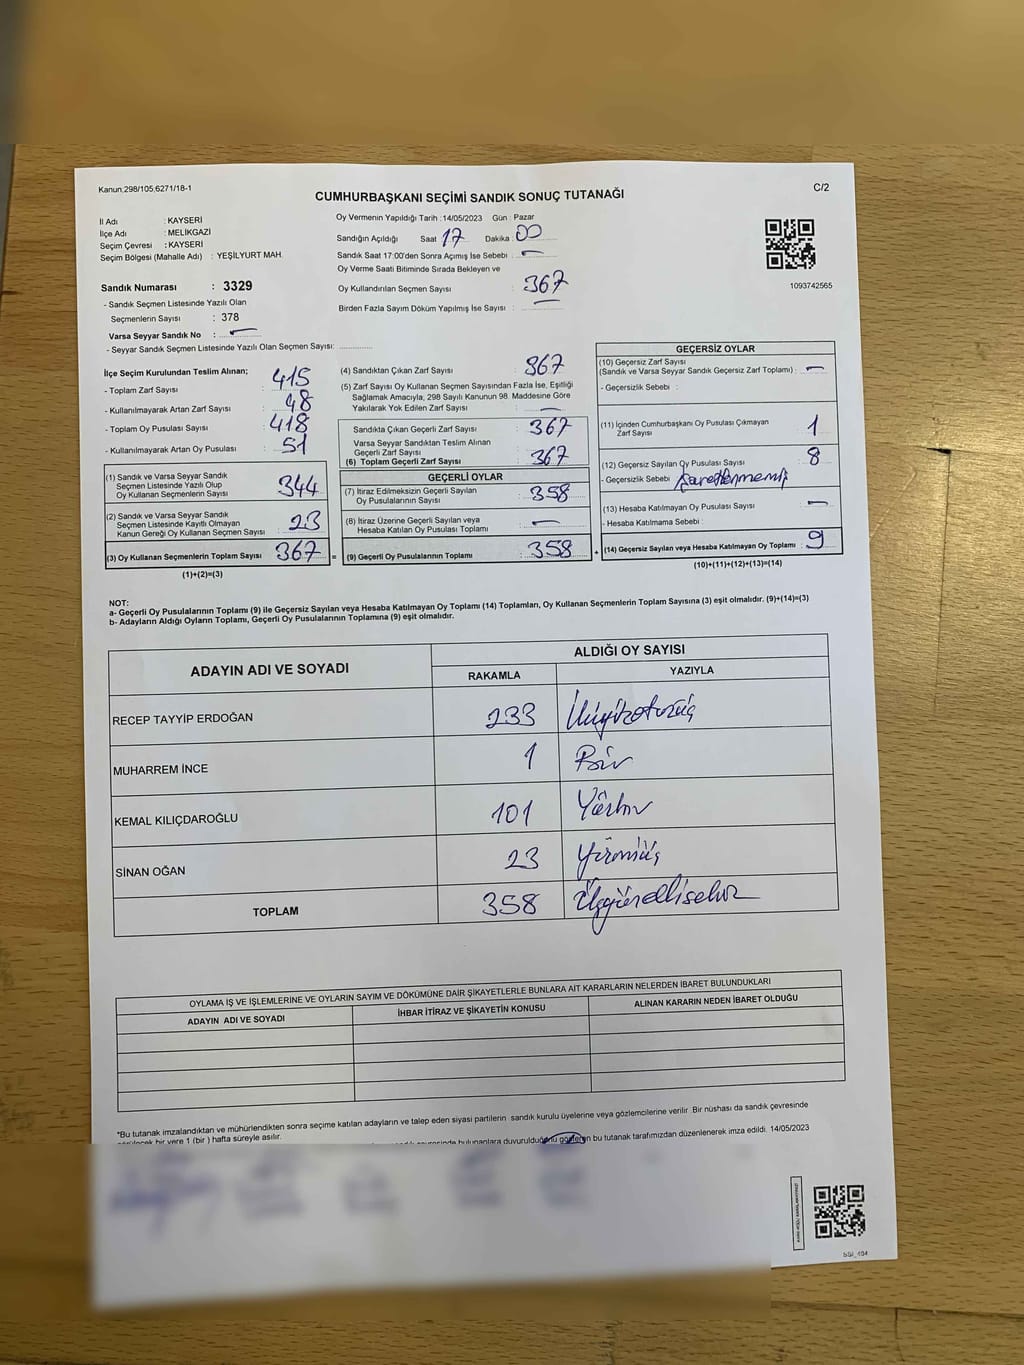 Kanun;298/105;6271/18-1
C/2
CUMHURBAŞKANI SEÇİMİ SANDIK SONUÇ TUTANAĞI
İl Adı : KAYSERİ
İlçe Adı : MELİKGAZİ
Seçim Çevresi : KAYSERİ
Seçim Bölgesi (Mahalle Adı) : YEŞİLYURT MAH.
Sandık Numarası : 3329
- Sandık Seçmen Listesinde Yazılı Olan
Seçmenlerin Sayısı : 378
Varsa Seyyar Sandık No : -
- Seyyar Sandık Seçmen Listesinde Yazılı Olan Seçmen Sayısı: ............
Oy Vermenin Yapıldığı Tarih :14/05/2023 Gün : Pazar
Sandığın Açıldığı Saat 17 Dakika : 00
Sandık Saat 17:00'den Sonra Açımış İse Sebebi : -
Oy Verme Saati Bitiminde Sırada Bekleyen ve
Oy Kullandırılan Seçmen Sayısı : 367
Birden Fazla Sayım Döküm Yapılmış İse Sayısı : -
1093742565
İlçe Seçim Kurulundan Teslim Alınan;
- Toplam Zarf Sayısı : 415
- Kullanılmayarak Artan Zarf Sayısı : 48
- Toplam Oy Pusulası Sayısı : 418
- Kullanılmayarak Artan Oy Pusulası : 51
(1) Sandık ve Varsa Seyyar Sandık
Seçmen Listesinde Yazılı Olup
Oy Kullanan Seçmenlerin Sayısı : 344
(2) Sandık ve Varsa Seyyar Sandık
Seçmen Listesinde Kayıtlı Olmayan
Kanun Gereği Oy Kullanan Seçmen Sayısı : 23
(3) Oy Kullanan Seçmenlerin Toplam Sayısı : 367 =
(1)+(2)=(3)
(4) Sandıktan Çıkan Zarf Sayısı : 367
(5) Zarf Sayısı Oy Kullanan Seçmen Sayısından Fazla İse, Eşitliği
Sağlamak Amacıyla, 298 Sayılı Kanunun 98. Maddesine Göre
Yakılarak Yok Edilen Zarf Sayısı : -
Sandıkta Çıkan Geçerli Zarf Sayısı : 367
Varsa Seyyar Sandıktan Teslim Alınan
Geçerli Zarf Sayısı :
(6) Toplam Geçerli Zarf Sayısı : 367
GEÇERLİ OYLAR
(7) İtiraz Edilmeksizin Geçerli Sayılan
Oy Pusulalarının Sayısı : 358
(8) İtiraz Üzerine Geçerli Sayılan veya
Hesaba Katılan Oy Pusulası Toplamı : -
(9) Geçerli Oy Pusulalarının Toplamı : 358 +
GEÇERSİZ OYLAR
(10) Geçersiz Zarf Sayısı
(Sandık ve Varsa Seyyar Sandık Geçersiz Zarf Toplamı) : -
- Geçersizlik Sebebi :
(11) İçinden Cumhurbaşkanı Oy Pusulası Çıkmayan
Zarf Sayısı : 1
(12) Geçersiz Sayılan Oy Pusulası Sayısı : 8
- Geçersizlik Sebebi : işaretlenmemiş
(13) Hesaba Katılmayan Oy Pusulası Sayısı : -
- Hesaba Katılmama Sebebi :
(14) Geçersiz Sayılan veya Hesaba Katılmayan Oy Toplamı : 9
(10)+(11)+(12)+(13)=(14)
NOT:
a- Geçerli Oy Pusulalarının Toplamı (9) ile Geçersiz Sayılan veya Hesaba Katılmayan Oy Toplamı (14) Toplamları, Oy Kullanan Seçmenlerin Toplam Sayısına (3) eşit olmalıdır. (9)+(14)=(3)
b- Adayların Aldığı Oyların Toplamı, Geçerli Oy Pusulalarının Toplamına (9) eşit olmalıdır.
ADAYIN ADI VE SOYADI
ALDIĞI OY SAYISI
RAKAMLA YAZIYLA
RECEP TAYYİP ERDOĞAN 233 İkiyüzotuzüç
MUHARREM İNCE 1 Bir
KEMAL KILIÇDAROĞLU 101 Yüzbir
SİNAN OĞAN 23 Yirmiüç
TOPLAM 358 Üçyüzellisekiz
OYLAMA İŞ VE İŞLEMLERİNE VE OYLARIN SAYIM VE DÖKÜMÜNE DAİR ŞİKAYETLERLE BUNLARA AİT KARARLARIN NELERDEN İBARET BULUNDUKLARI
ADAYIN ADI VE SOYADI İHBAR İTİRAZ VE ŞİKAYETİN KONUSU ALINAN KARARIN NEDEN İBARET OLDUĞU
*Bu tutanak imzalandıktan ve mühürlendikten sonra seçime katılan adayların ve talep eden siyasi partilerin sandık kurulu üyelerine veya gözlemcilerine verilir. Bir nüshası da sandık çevresinde
bir yere 1 (bir ) hafta süreyle asılır. bulunanlara duyurulduğunu gösteren bu tutanak tarafımızdan düzenlenerek imza edildi. 14/05/2023